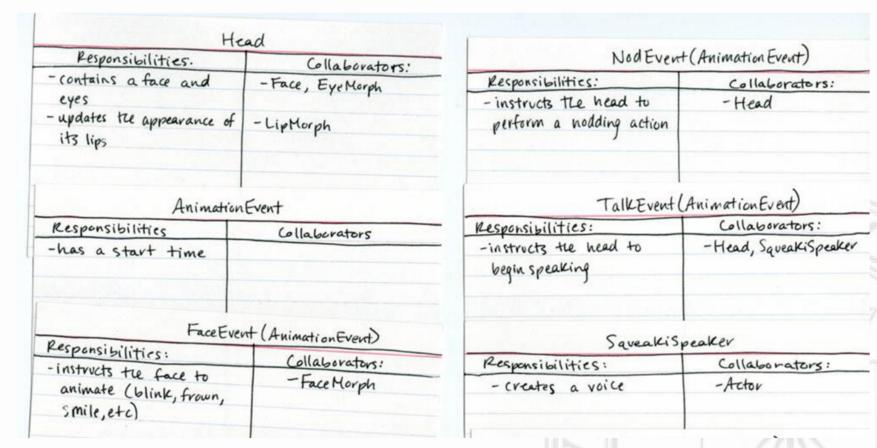 Head
Responsibilities.
Collaborators:
- contains a face and
eyes
- Face, EyeMorph
- updates the appearance of
its lips
- LipMorph
AnimationEvent
Responsibilities
Collaborators
- has a start time
FaceEvent (AnimationEvent)
Responsibilities:
Collaborators:
- instructs the face to
animate (blink, frown,
smile, etc)
- FaceMorph
NodEvent (AnimationEvent)
Responsibilities:
Collaborators:
- instructs the head to
perform a nodding action
- Head
TalkEvent (AnimationEvent)
Responsibilities:
Collaborators:
- instructs the head to
begin speaking
- Head, SqueakiSpeaker
SqueakiSpeaker
Responsibilities:
Collaborators:
- creates a voice
- Actor